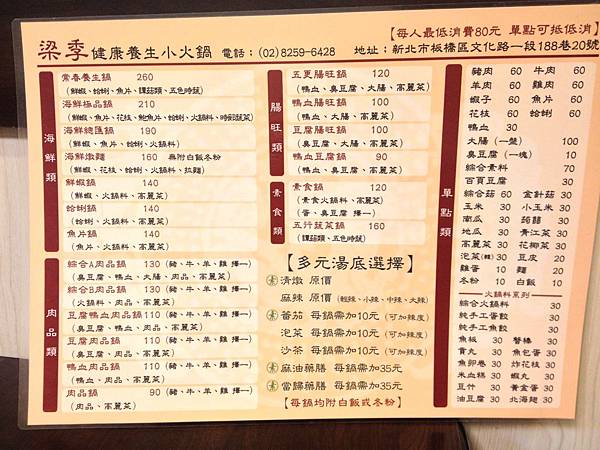 【每人最低消費80元 單點可抵低消】
梁季 健康養生小火鍋 電話：(02)8259-6428 地址：新北市板橋區文化路一段188巷20號
海鮮類
常春養生鍋 260
(鮮蝦、蛤蜊、魚片、鏍菇類、五色時蔬)
海鮮極品鍋 210
海鮮總匯鍋 190
(鮮蝦、魚片、蛤蜊、火鍋料)
海鮮燉麵 160 無附白飯冬粉
(鮮蝦、花枝、蛤蜊、火鍋料、拉麵)
鮮蝦鍋 140
(鮮蝦、火鍋料、高麗菜)
蛤蜊鍋 140
(蛤蜊、火鍋料、高麗菜)
魚片鍋 140
(魚片、火鍋料、高麗菜)
肉品類
綜合A肉品鍋 130 (豬、牛、羊、雞 擇一)
(臭豆腐、鴨血、大腸、肉品、高麗菜)
綜合B肉品鍋 130 (豬、牛、羊、雞 擇一)
(火鍋料、肉品、高麗菜)
豆腐鴨血肉品鍋 110 (豬、牛、羊、雞 擇一)
(臭豆腐、鴨血、肉品、高麗菜)
豆腐肉品鍋 110 (豬、牛、羊、雞 擇一)
(臭豆腐、肉品、高麗菜)
鴨血肉品鍋 110 (豬、牛、羊、雞 擇一)
(鴨血、肉品、高麗菜)
肉品鍋 90 (豬、牛、羊、雞 擇一)
(肉品、高麗菜)
腸旺類
五更腸旺鍋 120
(鴨血、臭豆腐、大腸、高麗菜)
鴨血腸旺鍋 100
(鴨血、大腸、高麗菜)
豆腐腸旺鍋 100
(臭豆腐、大腸、高麗菜)
鴨血豆腐鍋 90
(鴨血、臭豆腐、高麗菜)
素食類
素食鍋 120
(素食火鍋料、高麗菜)
(蛋、臭豆腐 擇一)
五行蔬菜鍋
(鏍菇類、五色時蔬)
【多元湯底選擇】
素 清燉 原價
麻辣 原價 (輕辣、小辣、中辣、大辣)
素 番茄 每鍋需加10元 (可加辣度)
泡菜 每鍋需加10元 (可加辣度)
沙茶 每鍋需加10元 (可加辣度)
素 麻油藥膳 每鍋需加35元
素 當歸藥膳 每鍋需加35元
【每鍋均附白飯或冬粉】
單點類
豬肉 60 牛肉 60
羊肉 60 雞肉 60
蝦子 60 魚片 60
花枝 60 蛤蜊 60
鴨血 30
大腸(一盤) 100
臭豆腐(一塊) 10
綜合素料 70
百頁豆腐 30
綜合菇 60 金針菇 30
玉米 30 小玉米 30
南瓜 30 蒟蒻 30
地瓜 30 青江菜 30
高麗菜 30 花椰菜 30
泡菜(辣) 30 豆皮 20
雞蛋 10 麵 20
冬粉 10 白飯 10
火鍋料系列
綜合火鍋料 30
純手工蛋餃 30
純手工魚餃 30
魚板 30 蟹棒 30
貢丸 30 魚包蛋 30
魚卵卷 30 炸花枝 30
米血糕 30 蝦丸 30
豆竹 30 黃金蛋 30
油豆腐 30 北海翅 30